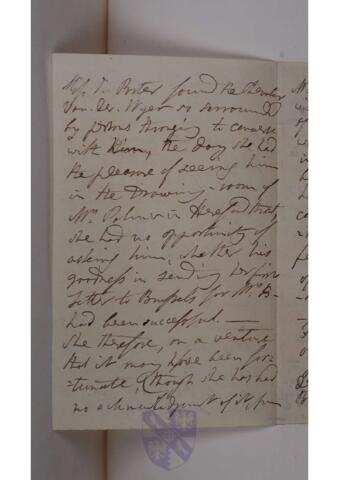 Miss J. Porter found the Chevalier
Van de Weyer so surrounded
by persons thronging to converse
with him, the day she had
the pleasure of seeing him
in the Drawing-room of
Mrs. Palmer in Hereford Street,
she had no opportunity of
asking him, whether his
goodness in sending her
letter to Brussels for Mr.
had been successful. —
She therefore, on a venture
that it may have been for-
=tunate, (though she has had
no acknowledgment of it,